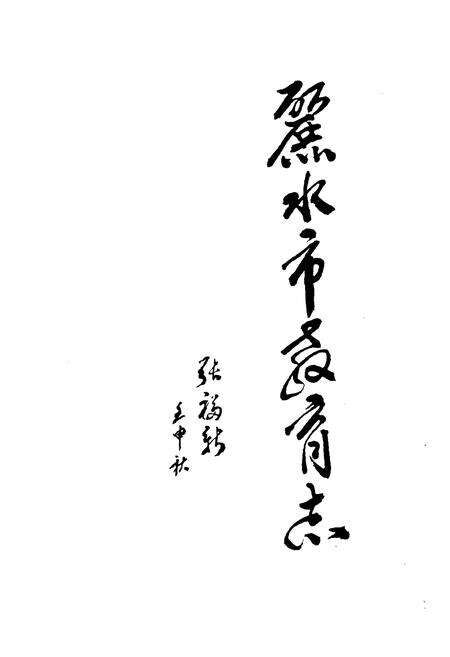 麗水市教育志
张福新
壬申秋